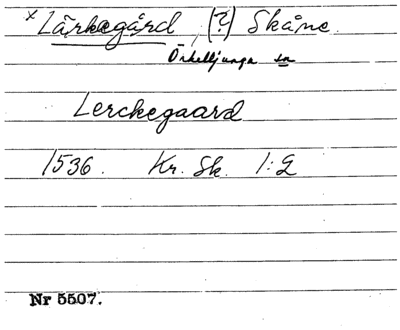 x Lärkegård, (?) Skåne.
Örkelljunga sn
Lerckegaard
1536. Kr. Sk. 1:2
Nr 5507.